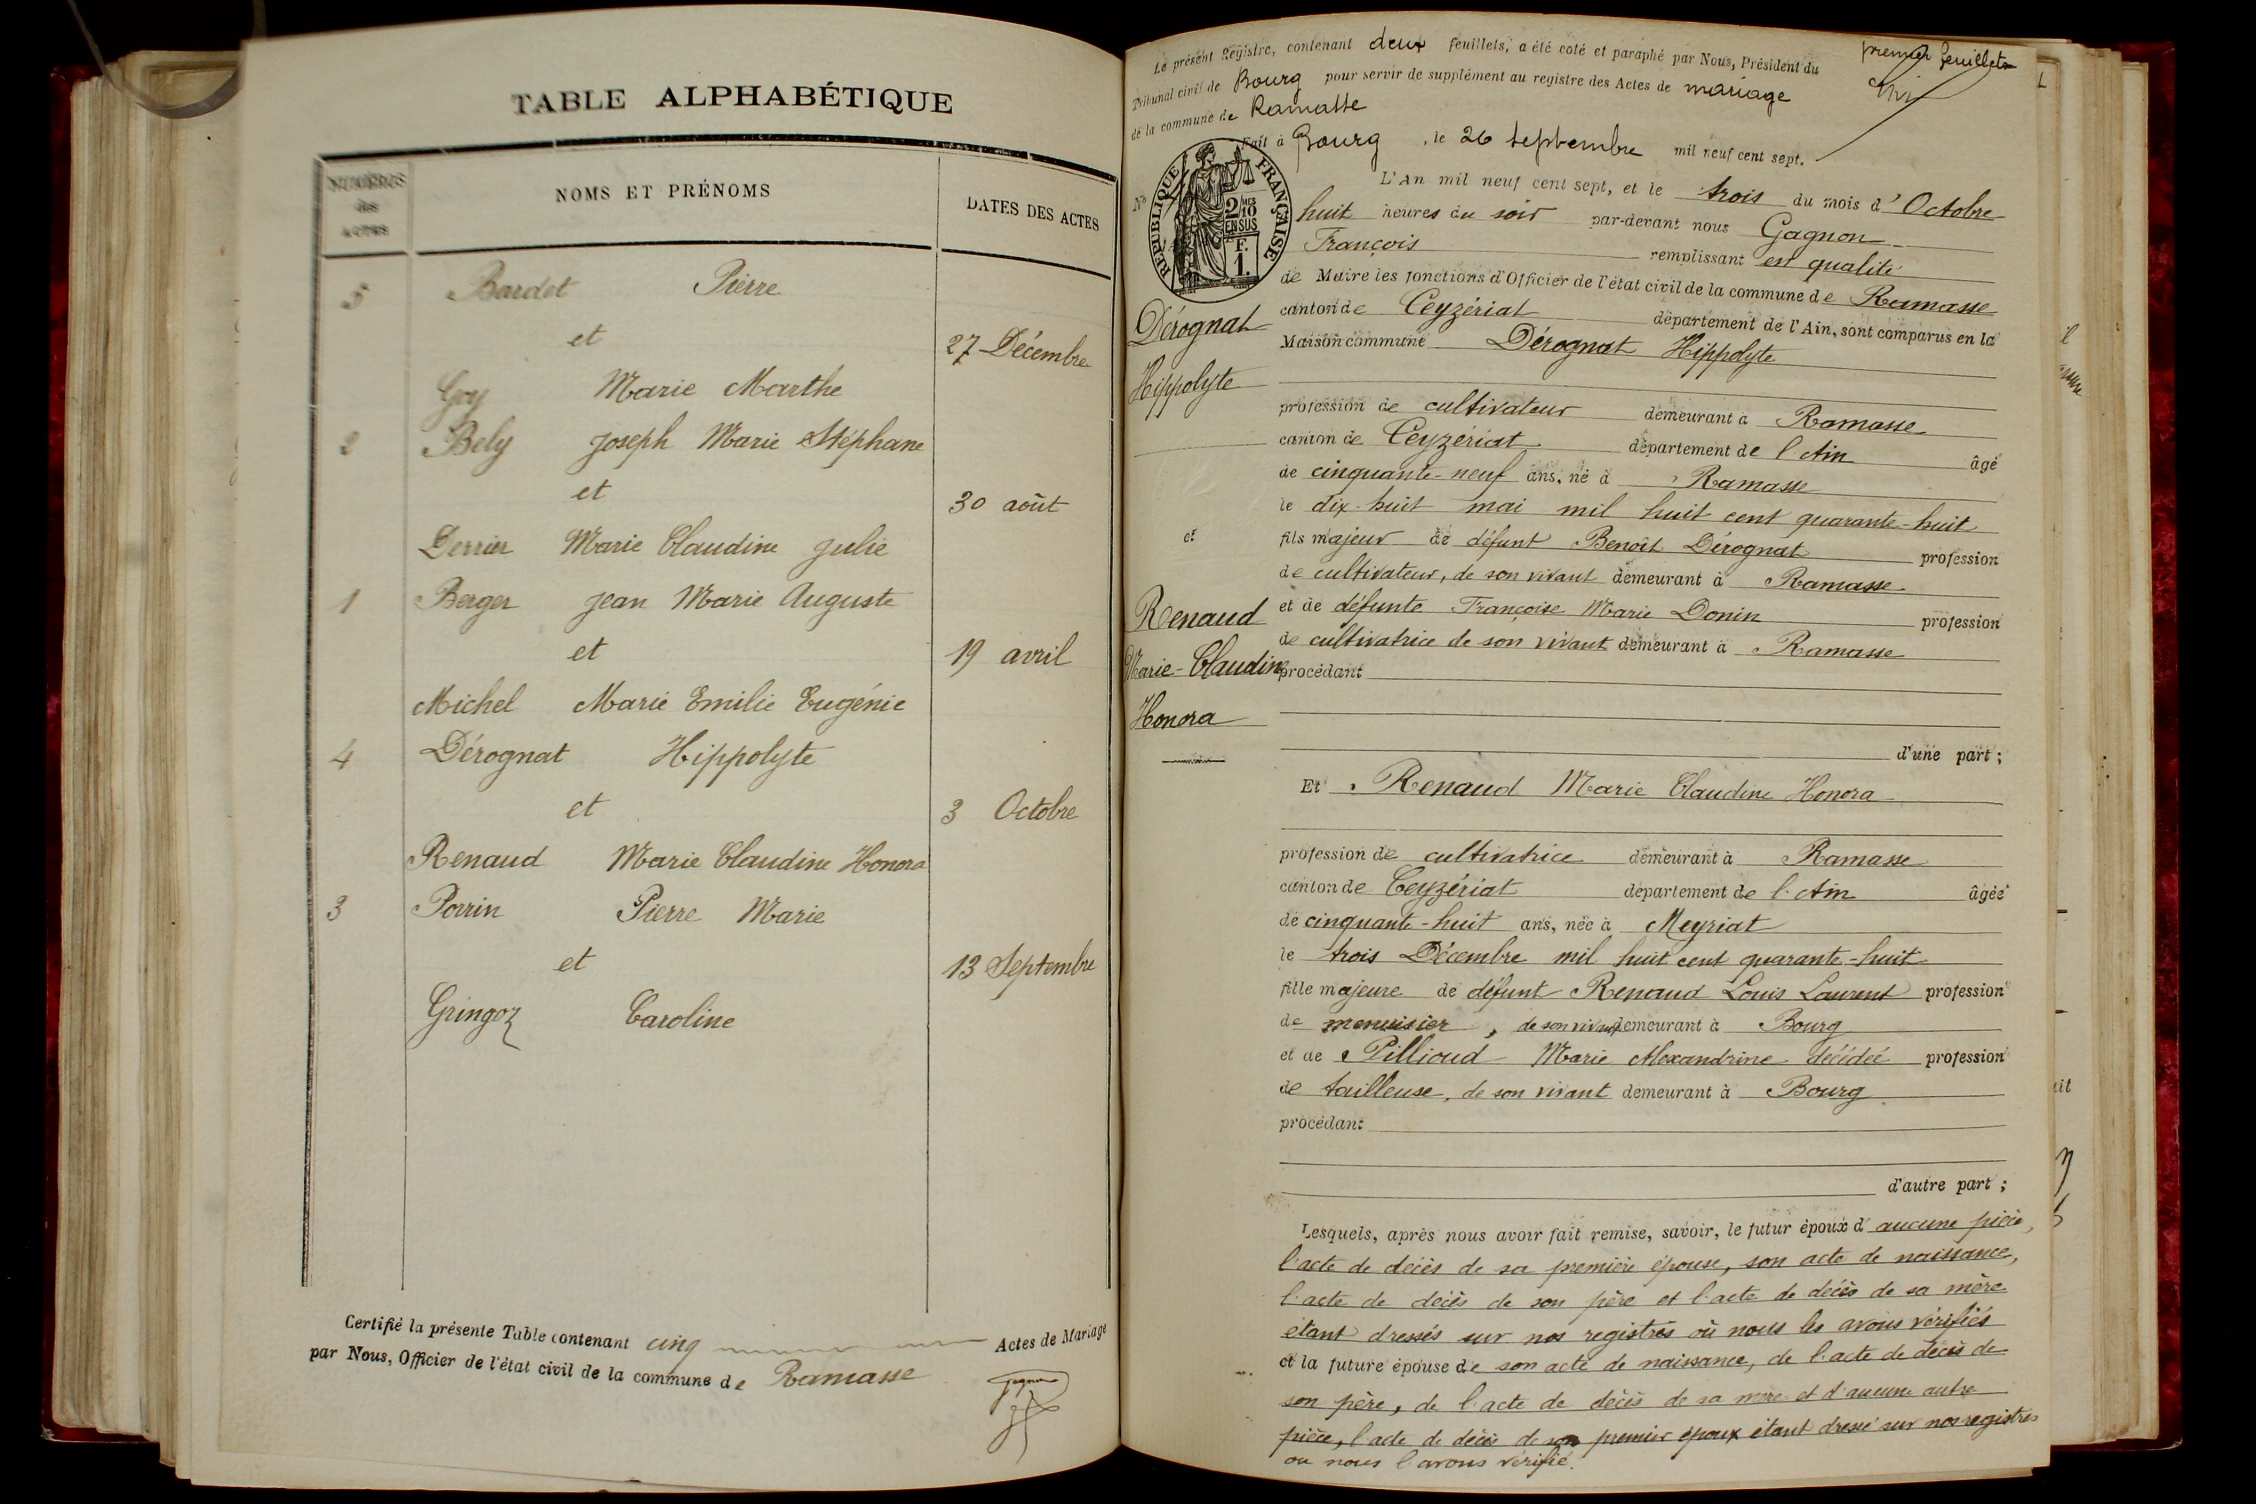 TABLE ALPHABÉTIQUE
NUMÉROS
des
ACTES
NOMS ET PRÉNOMS
DATES DES ACTES
5 Bardet Pierre
et
27 Décembre
Goy Marie Marthe
2 Bely Joseph Marie Stéphane
et
30 août
Derrier Marie Claudine Julie
1 Berger Jean Marie Auguste
et
19 avril
Michel Marie Emilie Eugénie
4 Dérognat Hippolyte
et
3 Octobre
Renaud Marie Claudine Honora
3 Perrin Pierre Marie
et
13 Septembre
Gringoz Caroline
Certifié la présente Table contenant cinq Actes de Mariage
par Nous, Officier de l'état civil de la commune de Ramasse
Gagnon
Le présent Registre, contenant deux feuillets, a été coté et paraphé par Nous, Président du
premier feuillet
Tribunal civil de Bourg pour servir de supplément au registre des Actes de mariage
de la commune de Ramasse
Fait à Bourg, le 26 septembre mil neuf cent sept.
Nº
RÉPUBLIQUE FRANÇAISE
2 MES
10
EN SUS
F.
1.
L'An mil neuf cent sept, et le trois du mois d'Octobre
huit heures du soir par-devant nous Gagnon
François remplissant en qualité
de Maire les fonctions d'Officier de l'état civil de la commune de Ramasse
canton de Ceyzériat département de l'Ain, sont comparus en la
Maison commune Dérognat Hippolyte
Dérognat
Hippolyte
profession de cultivateur demeurant à Ramasse
canton de Ceyzériat département de l'Ain âgé
de cinquante-neuf ans, né à Ramasse
le dix-huit mai mil huit cent quarante-huit
et
fils majeur de défunt Benoît Dérognat profession
de cultivateur, de son vivant demeurant à Ramasse
Renaud
et de défunte Françoise Marie Donin profession
de cultivatrice de son vivant demeurant à Ramasse
Marie-Claudine
procédant
Honora
d'une part;
Et Renaud Marie Claudine Honora
profession de cultivatrice demeurant à Ramasse
canton de Ceyzériat département de l'Ain âgée
de cinquante-huit ans, née à Meyriat
le trois Décembre mil huit cent quarante-huit
fille majeure de défunt Renaud Louis Laurent profession
de menuisier, de son vivant demeurant à Bourg
et de Pillioud Marie Alexandrine décédée profession
de tailleuse, de son vivant demeurant à Bourg
procédant
d'autre part;
Lesquels, après nous avoir fait remise, savoir, le futur époux d'aucune pièce,
l'acte de décès de sa première épouse, son acte de naissance,
l'acte de décès de son père et l'acte de décès de sa mère
étant dressés sur nos registres où nous les avons vérifiés
et la future épouse de son acte de naissance, de l'acte de décès de
son père, de l'acte de décès de sa mère et d'aucune autre
pièce, l'acte de décès de son premier époux étant dressé sur nos registres
ou nous l'avons vérifié.